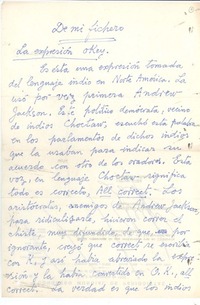 De mi fichero
La expresión okey.
Es ésta una expresión tomada
del lenguaje indio en Norte América. La
usó por vez primera Andrew
Jackson. Este político demócrata, vecino
de indios Choctaw, escuchó esta palabra
en los parlamentos de dichos indios
que la usaban para indicar su
acuerdo con otro de los oradores. Esta
voz, en lenguaje Choctaw significa
todo es correcto, All correct. Los
aristócratas, enemigos de Andrew Jackson
para ridiculizarlo, hicieron correr el
chiste, muy difundido, de que por
ignorante, creyó que correct se escribía
con K, y así había abreviado la expre
sión y la había convertido en O.K., all
correct. La verdad es que los indios